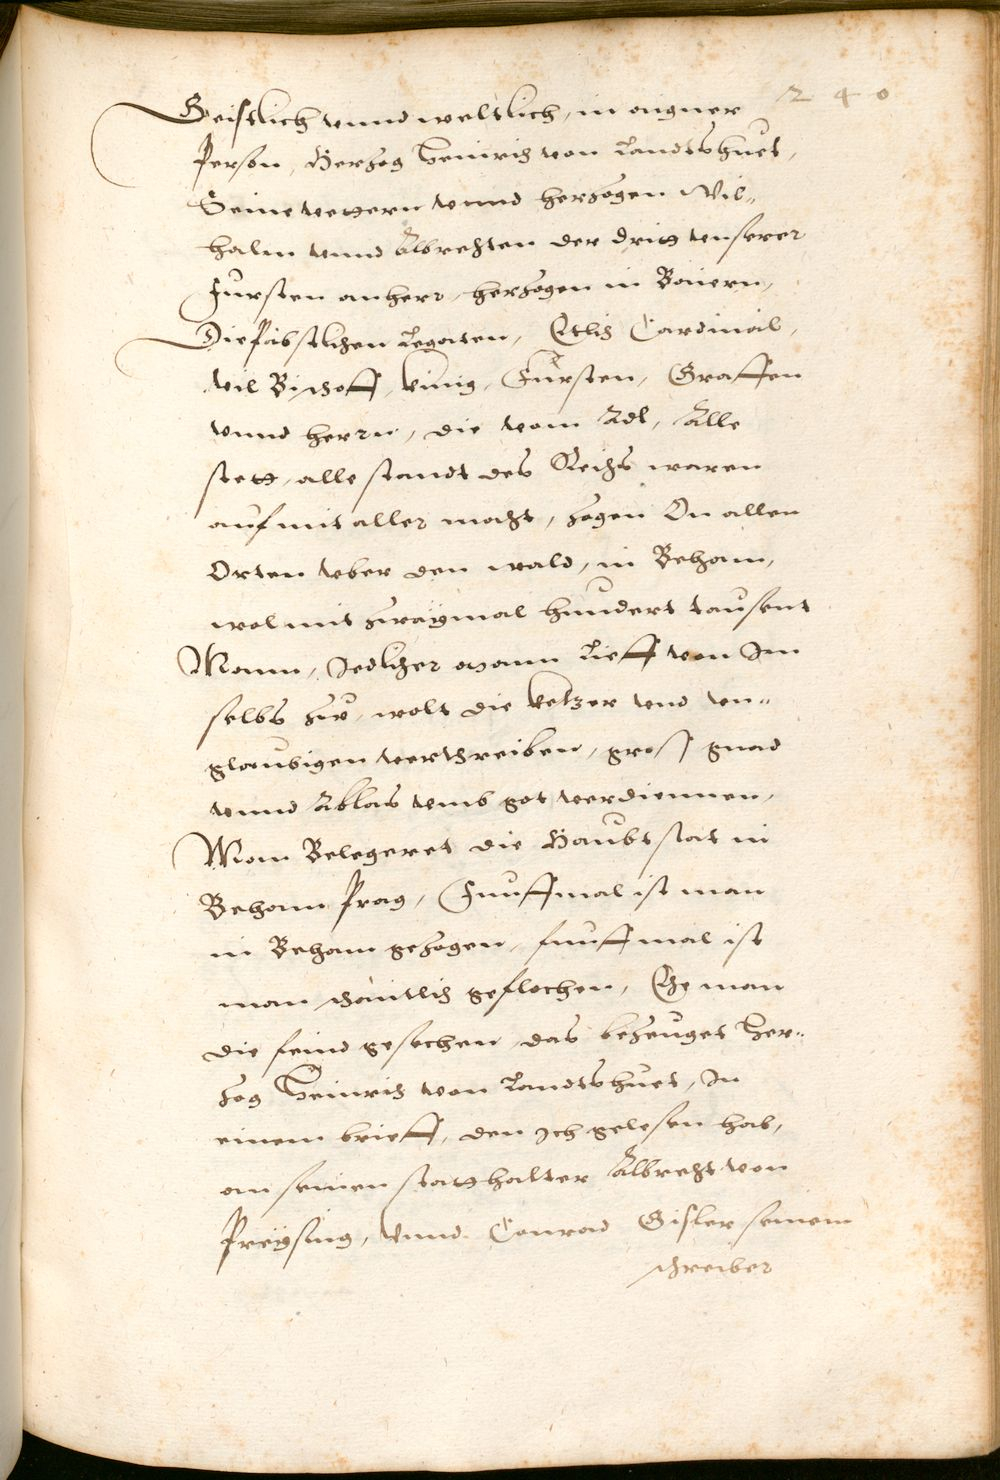 240
Geistlich vnnd weltlich, in aigner
Person, Herzog Heinrich von Landtshuet,
Seine vettern vnnd herzogen Wil=
halm vnnd Albrechten der dritt vnserer
Fursten anherr, herzogen in Baiern,
Die Päbstlichen Legaten, Etlich Cardinäl,
vil Bischoff, künig, Fürsten, Graffen
vnnd herrn, die vom Adl, Alle
stett, alle standt des Reichs waren
auf mit aller macht, zogen On allen
Orten vber den wald, in Beham,
wol mit zwaÿmal hundert tausent
Mann, Jedlicher mann Lieff von Im
selbs zue, wolt die ketzer vnd vn=
glaubigen vertreiben, gross gnad
vnnd Ablas vmb got verdiennen,
Man Belegeret die Haubt stat in
Beham Prag, Funffmal ist man
in Beham gezogen, funffmal ist
man schantlich geflochen, Ee man
die feind gesechen, das bezeuget Her=
zog Heinrich von Landtshuet, In
einem brieff, den Ich gelesen hab,
an seinen statthalter Albrecht von
Preÿsing, vnnd Conrad Gisler seinem
schreiber